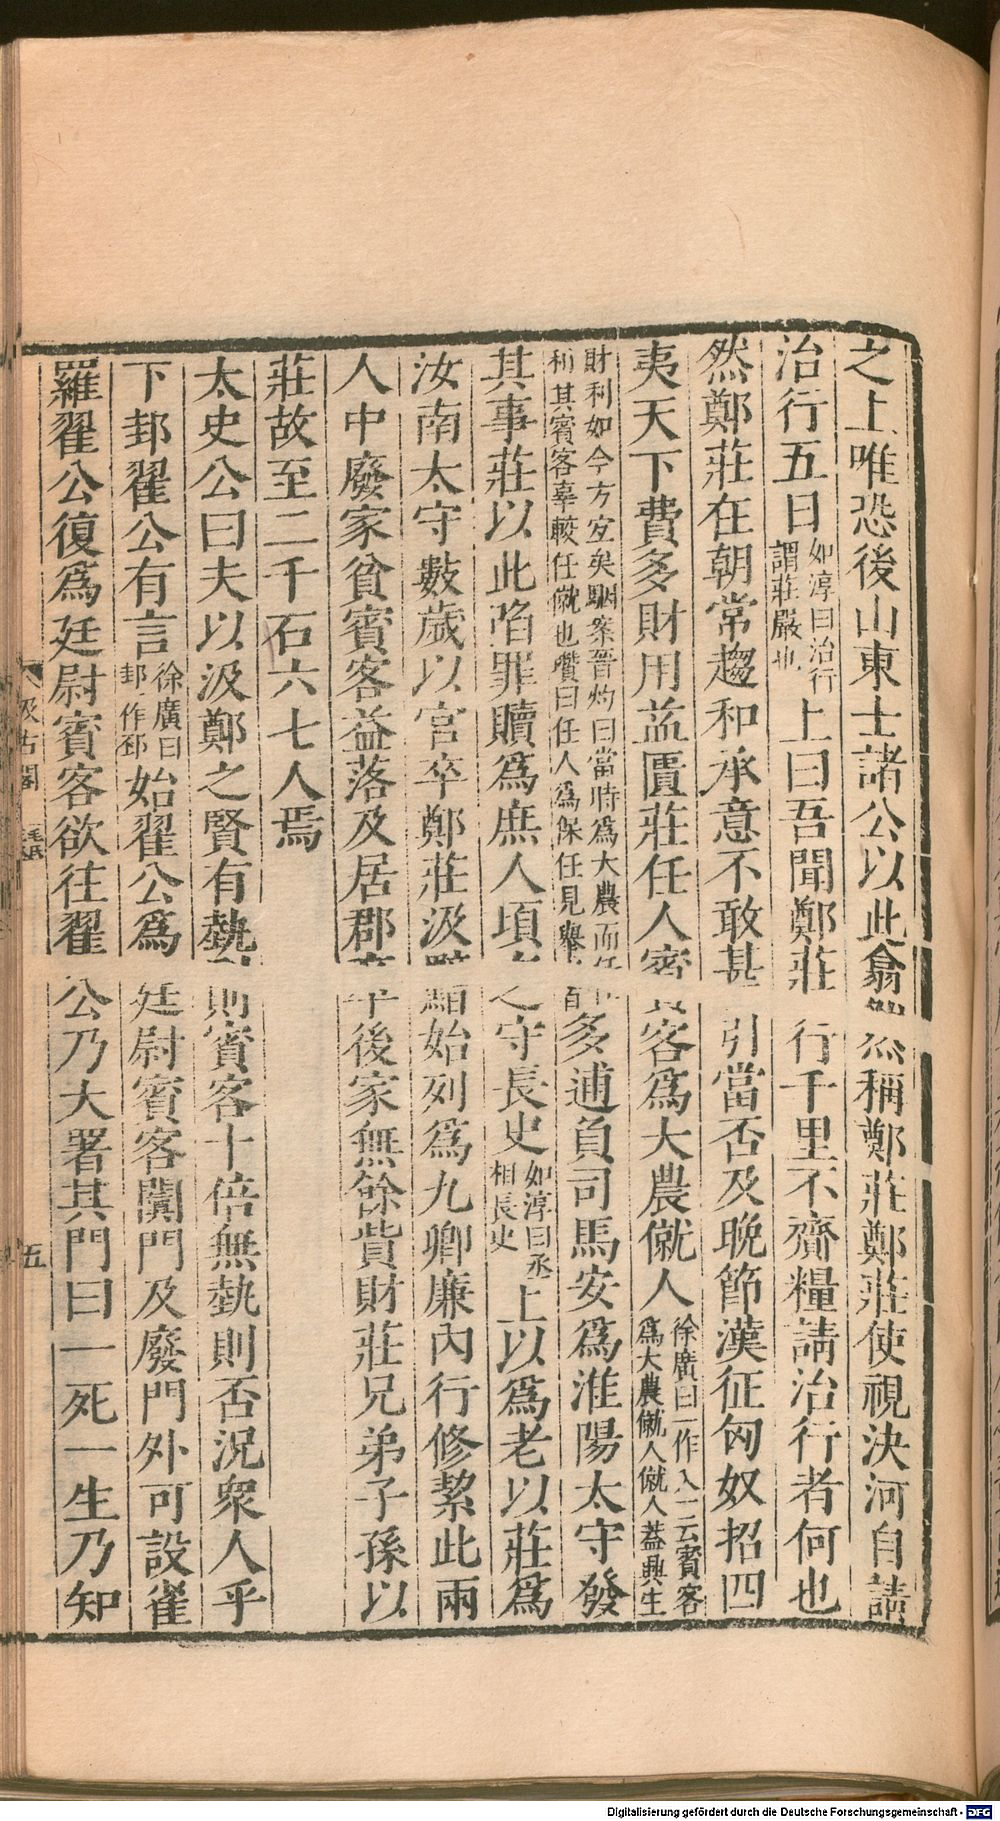 之上唯恐後山東士諸公以此翕然稱鄭莊鄭莊使視決河自請
治行五日如淳曰治行謂莊嚴也上曰吾聞鄭莊行千里不齎糧請治行者何也
然鄭莊在朝常趨和承意不敢甚引當否及晚節漢征匈奴招四
夷天下費多財用益匱莊任人賓客爲大農僦人徐廣曰一作入一云賓客爲大農僦人僦人蓋興生
財利如今方宜矣駰案晉灼曰當時爲大農而任利其賓客辜較任僦也瓚曰任人爲保任見舉者多逋負司馬安爲淮陽太守發
其事莊以此陷罪贖爲庶人頃之守長史如淳曰丞相長史上以爲老以莊爲
汝南太守數歲以官卒鄭莊汲黯始列爲九卿廉內行修絜此兩
人中廢家貧賓客益落及居郡卒後家無餘貲財莊兄弟子孫以
莊故至二千石六七人焉
太史公曰夫以汲鄭之賢有埶則賓客十倍無埶則否況衆人乎
下邽翟公有言徐廣曰邽一作邳始翟公爲廷尉賓客闐門及廢門外可設雀
羅翟公復爲廷尉賓客欲往翟公乃大署其門曰一死一生乃知
汲古閣
毛氏
五
Digitalisierung gefördert durch die Deutsche Forschungsgemeinschaft - DFG